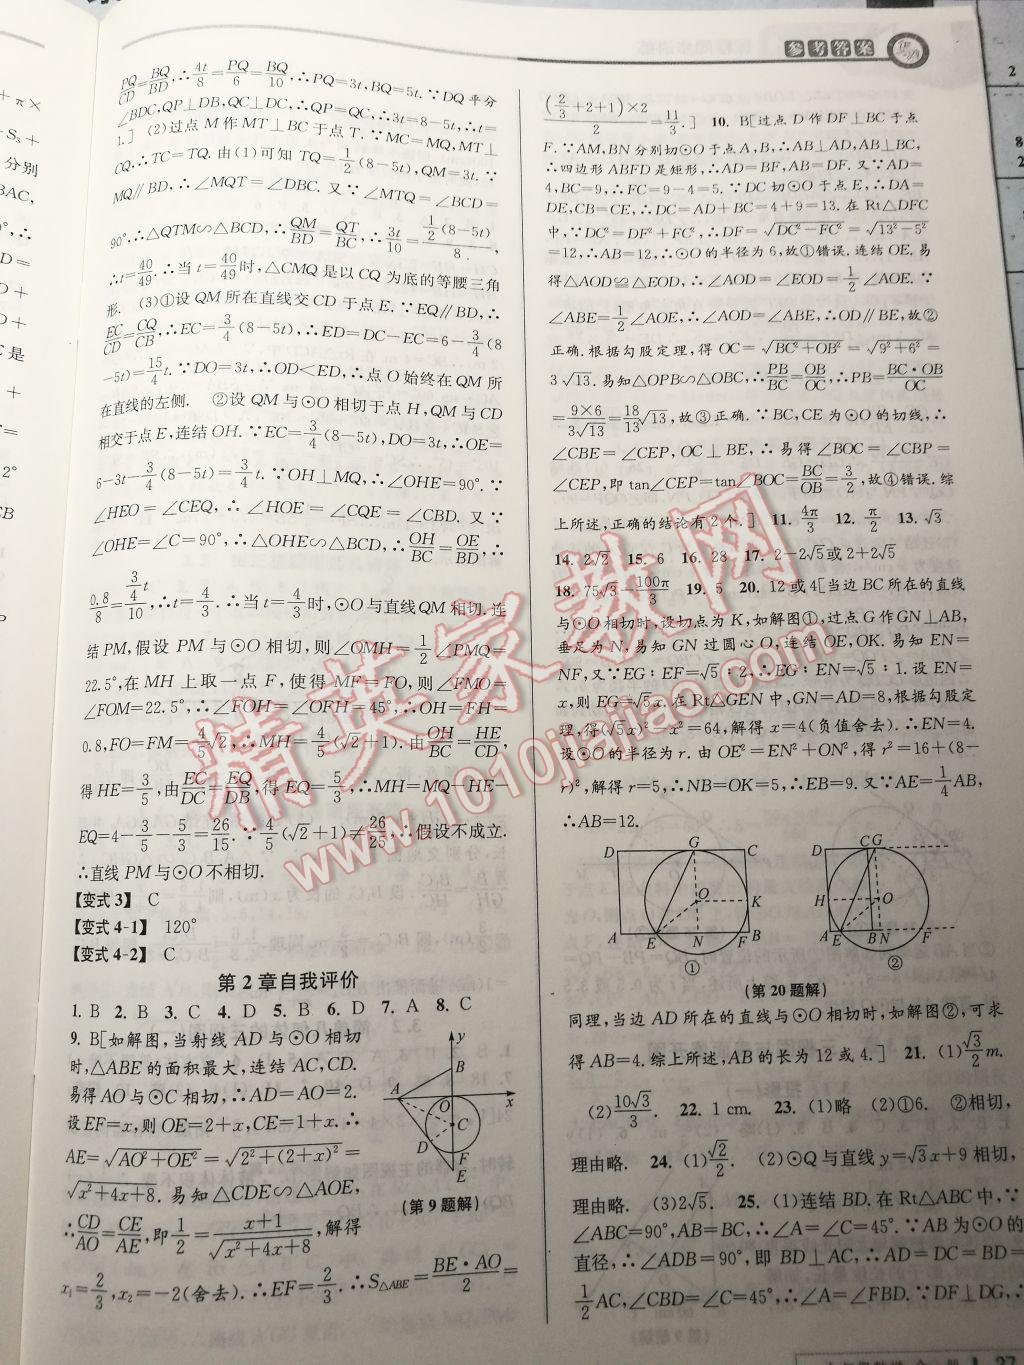 参考答案
PQ/CD=BQ/BD,∴4t/8=PQ/6=BQ/10,∴PQ=3t,BQ=5t.∵DQ平分
∠BDC,QP⊥DB,QC⊥DC,∴QP=QC,∴3t=8-5t,∴t=
1.] (2)过点M作MT⊥BC于点T.∵MC=MQ,MT⊥
CQ,∴TC=TQ.由(1)可知TQ=1/2(8-5t),QM=3t.∵
MQ∥BD,∴∠MQT=∠DBC.又∵∠MTQ=∠BCD=
90°,∴△QTM∽△BCD,∴QM/BD=QT/BC,∴3t/10=1/2(8-5t)/8.
∴t=40/49.∴当t=40/49时,△CMQ是以CQ为底的等腰三角
形. (3)①设QM所在直线交CD于点E.∵EQ∥BD,∴
EC/CD=CQ/CB,∴EC=3/4(8-5t),∴ED=DC-EC=6-3/4(8
-5t)=15/4t.∵DO=3t,∴OD<ED,∴点O始终在QM所
在直线的左侧. ②设QM与⊙O相切于点H,QM与CD
相交于点E,连结OH.∵EC=3/4(8-5t),DO=3t,∴OE=
6-3t-3/4(8-5t)=3/4t.∵OH⊥MQ,∴∠OHE=90°.∵
∠HEO=∠CEQ,∴∠HOE=∠CQE=∠CBD.又∵
∠OHE=∠C=90°,∴△OHE∽△BCD,∴OH/BC=OE/BD,∴
0.8/8=3/4t/10,∴t=4/3.∴当t=4/3时,⊙O与直线QM相切.连
结PM,假设PM与⊙O相切,则∠OMH=1/2∠PMQ=
22.5°,在MH上取一点F,使得MF=FO,则∠FMO=
∠FOM=22.5°,∴∠FOH=∠OFH=45°,∴OH=FH=
0.8,FO=FM=4/5√2,∴MH=4/5(√2+1).由OH/BC=HE/CD,
得HE=3/5,由EC/DC=EQ/DB,得EQ=5/3,∴MH=MQ-HE-
EQ=4-3/5-5/3=26/15.∵4/5(√2+1)≠26/25,∴假设不成立.
∴直线PM与⊙O不相切.
【变式3】 C
【变式4-1】 120°
【变式4-2】 C
第2章自我评价
1. B 2. B 3. C 4. D 5. B 6. D 7. A 8. C
9. B[如解图,当射线AD与⊙C相切
时,△ABE的面积最大,连结AC,CD.
易得AO与⊙C相切,∴AD=AO=2.
设EF=x,则OE=2+x,CE=1+x.∴
AE=√AO²+OE²=√2²+(2+x)²=
√x²+4x+8.易知△CDE∽△AOE,
∴CD/AO=CE/AE,即1/2=x+1/√x²+4x+8,解得
x₁=2/3,x₂=-2(舍去).∴EF=2/3.∴S△ABE=BE·AO/2=
y
B
A
O
x
C
D
F
E
(第9题解)
(2/3+2+1)×2/2=11/3.] 10. B[过点D作DF⊥BC于点
F.∵AM,BN分别切⊙O于点A,B,∴AB⊥AD,AB⊥BC,
∴四边形ABFD是矩形,∴AD=BF,AB=DF.又∵AD=
4,BC=9,∴FC=9-4=5.∵DC切⊙O于点E,∴DA=
DE,CB=CE,∴DC=AD+BC=4+9=13.在Rt△DFC
中,∵DC²=DF²+FC²,∴DF=√DC²-FC²=√13²-5²
=12,∴AB=12,∴⊙O的半径为6,故①错误.连结OE.易
得△AOD≌△EOD,∴∠AOD=∠EOD=1/2∠AOE.∵
∠ABE=1/2∠AOE,∴∠AOD=∠ABE,∴OD∥BE,故②
正确.根据勾股定理,得OC=√BC²+OB²=√9²+6²=
3√13.易知△OPB∽△OBC,∴PB/BC=OB/OC,∴PB=BC·OB/OC
=9×6/3√13=18/13√13,故③正确.∵BC,CE为⊙O的切线,∴
∠CBE=∠CEP,OC⊥BE,∴易得∠BOC=∠CBP=
∠CEP,即tan∠CEP=tan∠BOC=BC/OB=3/2,故④错误.综
上所述,正确的结论有2个.] 11. 4π/3 12. π/2 13. √3
14. 2√2 15. 6 16. 28 17. 2-2√5或2+2√5
18. 75√3-100π/3 19. 5 20. 12或4[当边BC所在的直线
与⊙O相切时,设切点为K,如解图①,过点G作GN⊥AB,
垂足为N,易知GN过圆心O,连结OE,OK.易知EN=
NF,又∵EG∶EF=√5∶2,∴EG∶EN=√5∶1.设EN=
x,则EG=√5x.在Rt△GEN中,GN=AD=8,根据勾股定
理,得(√5x)²-x²=64,解得x=4(负值舍去).∴EN=4.
设⊙O的半径为r.由OE²=EN²+ON²,得r²=16+(8-
r)²,解得r=5,∴NB=OK=5,∴EB=9.又∵AE=1/4AB,
∴AB=12.
D G C
O
K
A E N F B
①
D CG
H
O
A E B N F
②
(第20题解)
同理,当边AD所在的直线与⊙O相切时,如解图②,可求
得AB=4.综上所述,AB的长为12或4.] 21. (1)√3/2m.
(2)10√3/3. 22. 1 cm. 23. (1)略 (2)①6. ②相切,
理由略. 24. (1)√2/2. (2)⊙Q与直线y=√3x+9相切,
理由略. (3)2√5. 25. (1)连结BD.在Rt△ABC中,∵
∠ABC=90°,AB=BC,∴∠A=∠C=45°.∵AB为⊙O的
直径,∴∠ADB=90°,即BD⊥AC,∴AD=DC=BD=
1/2AC,∠CBD=∠C=45°,∴∠A=∠FBD.∵DF⊥DG,∴
精英家教网
www.1010jiajiao.com